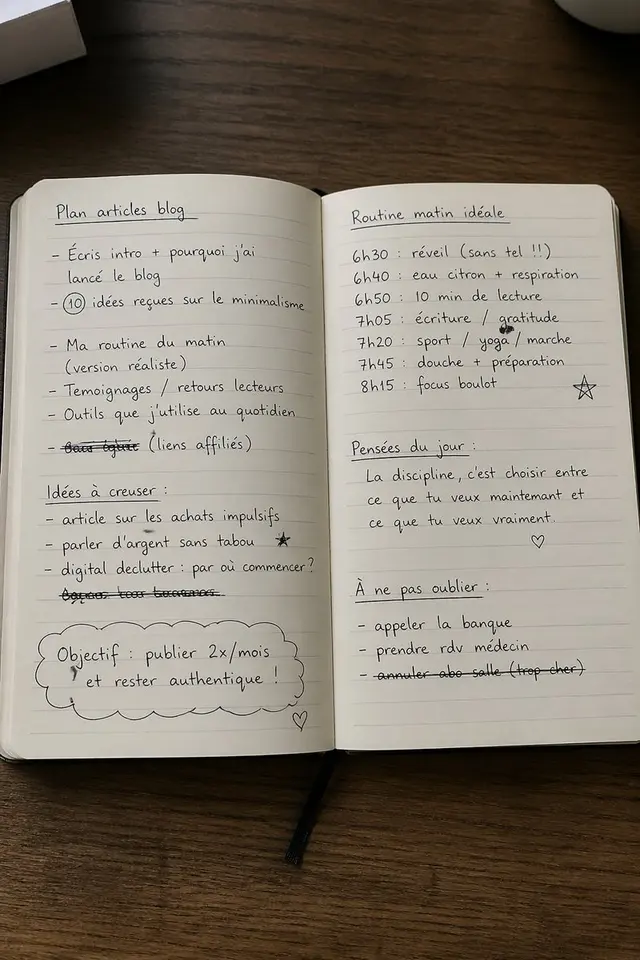 Plan articles blog
- Écris intro + pourquoi j'ai
lancé le blog
- 10 idées reçues sur le minimalisme
- Ma routine du matin
(version réaliste)
- Temoignages / retours lecteurs
- Outils que j'utilise au quotidien
- (liens affiliés)
Idées à creuser :
- article sur les achats impulsifs
- parler d'argent sans tabou ★
- digital declutter : par où commencer?
Objectif : publier 2x/mois
et rester authentique !
♡
Routine matin idéale
6h30 : réveil (sans tel !!)
6h40 : eau citron + respiration
6h50 : 10 min de lecture
7h05 : écriture / gratitude
7h20 : sport / yoga / marche
7h45 : douche + préparation
8h15 : focus boulot ☆
Pensées du jour :
La discipline, c'est choisir entre
ce que tu veux maintemant et
ce que tu veux vraiment.
♡
À ne pas oublier :
- appeler la banque
- prendre rdv médecin
- annuler abo salle (trop cher)